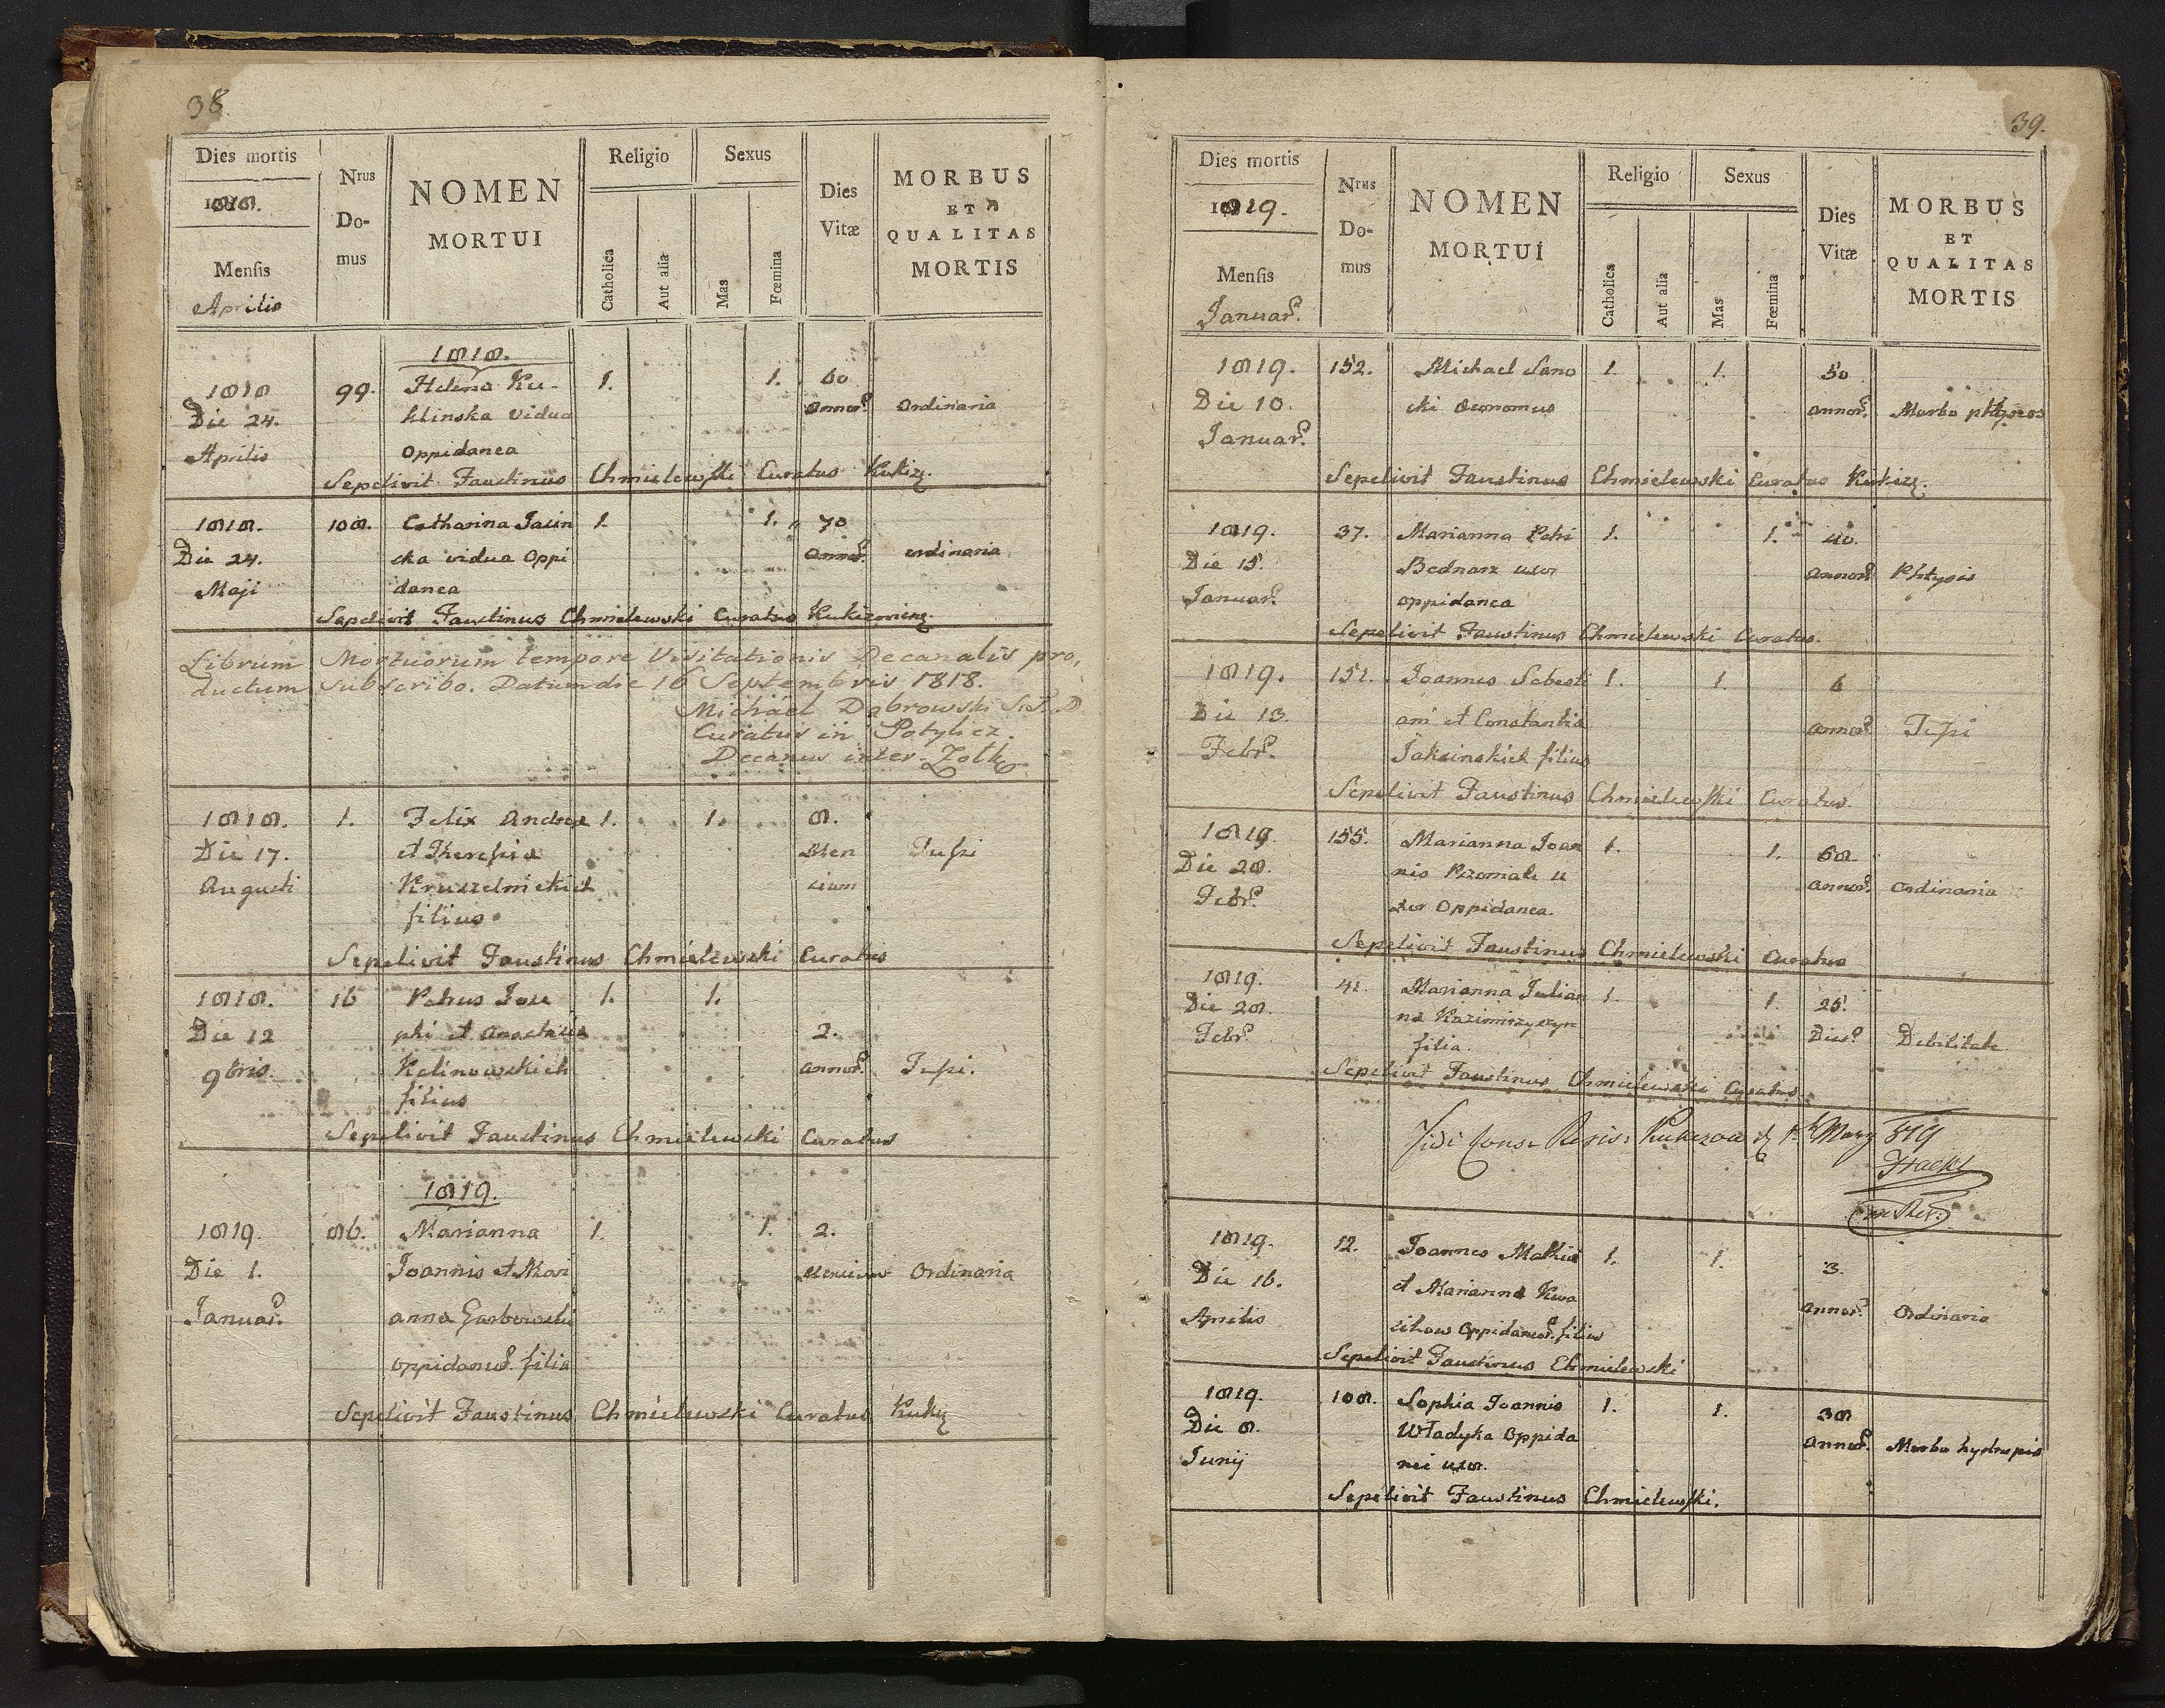 38
Dies mortis
1818.
Mensis
Aprilis
Nrus
Do-
mus
NOMEN
MORTUI
Religio
Catholica
Aut alia
Sexus
Mas
Fœmina
Dies
Vitæ
MORBUS
ET
QUALITAS
MORTIS
1818.
1818 99. Helena Ku- 1. 1. 60
Die 24. klinska vidua annor. Ordinaria
Aprilis Oppidanea
Sepelivit Faustinus Chmielewski Curatus Kukiz.
1818. 108. Catharina Jasin 1. 1. 70
Die 24. ska vidua Oppi annor. ordinaria
Maji danea
Sepelivit Faustinus Chmielewski Curatus Kukizoviens.
Librum Mortuorum tempore Visitationis Decanalis pro,
ductum subscribo. Datum die 16 Septembris 1818.
Michael Dąbrowski
Curatus in Potylicz.
Decanus inter. Zolk
1818. 1. Felix Andrea 1. 1. 8.
Die 17. et Theresiæ Men Tussi
Augusti Kruszelnickich sium
filius
Sepelivit Faustinus Chmielewski Curatus
1818. 16 Petrus Jose 1. 1.
Die 12 phi et Anastasia 2.
9bris. Kalinowskich annor. Tussi.
filius
Sepelivit Faustinus Chmielewski Curatus
1819.
1819. 86. Marianna 1. 1. 2.
Die 1. Joannis et Mari Mensium Ordinaria
Januar. anna Garbowski
oppidaneor. filia
Sepelivit Faustinus Chmielewski Curatus Kukiz
39.
Dies mortis
1819.
Mensis
Januar.
Nrus
Do-
mus
NOMEN
MORTUI
Religio
Catholica
Aut alia
Sexus
Mas
Fœmina
Dies
Vitæ
MORBUS
ET
QUALITAS
MORTIS
1819. 152. Michael Sano 1. 1. 50
Die 10. cki Œconomus annor. Morbo
Januar.
Sepelivit Faustinus Chmielewski Curatus Kukizz.
1819. 37. Marianna Petri 1. 1. 40.
Die 15. Bednarz uxor annor. Phtysis
Januar. oppidanea
Sepelivit Faustinus Chmielewski Curatus.
1819. 151. Joannes Sebasti 1. 1. 6
Die 13. ani et Constantia annor. Tussi
Febr. Jaksinskich filius
Sepelivit Faustinus Chmielewski Curatus.
1819 155. Marianna Joan 1. 1. 68
Die 28. nis u annor. Ordinaria
Febr. xor Oppidanea.
Sepelivit Faustinus Chmielewski Curatus
1819. 41. Marianna Julian 1. 1. 25.
Die 28. na Dier. Debilitate
Febr. filia.
Sepelivit Faustinus Chmielewski Curatus
819
1819. 12. Joannes Mathia 1. 1. 3.
Die 16. et Marianna Kwa annor. Ordinaria
Aprilis oppidaneor. filius
Sepelivit Faustinus Chmielewski
1819. 108. Sophia Joannis 1. 1. 38
Die 8. Władyka Oppida annor. Morbo hydropis
Junij nei uxor.
Sepelivit Faustinus Chmielewski.